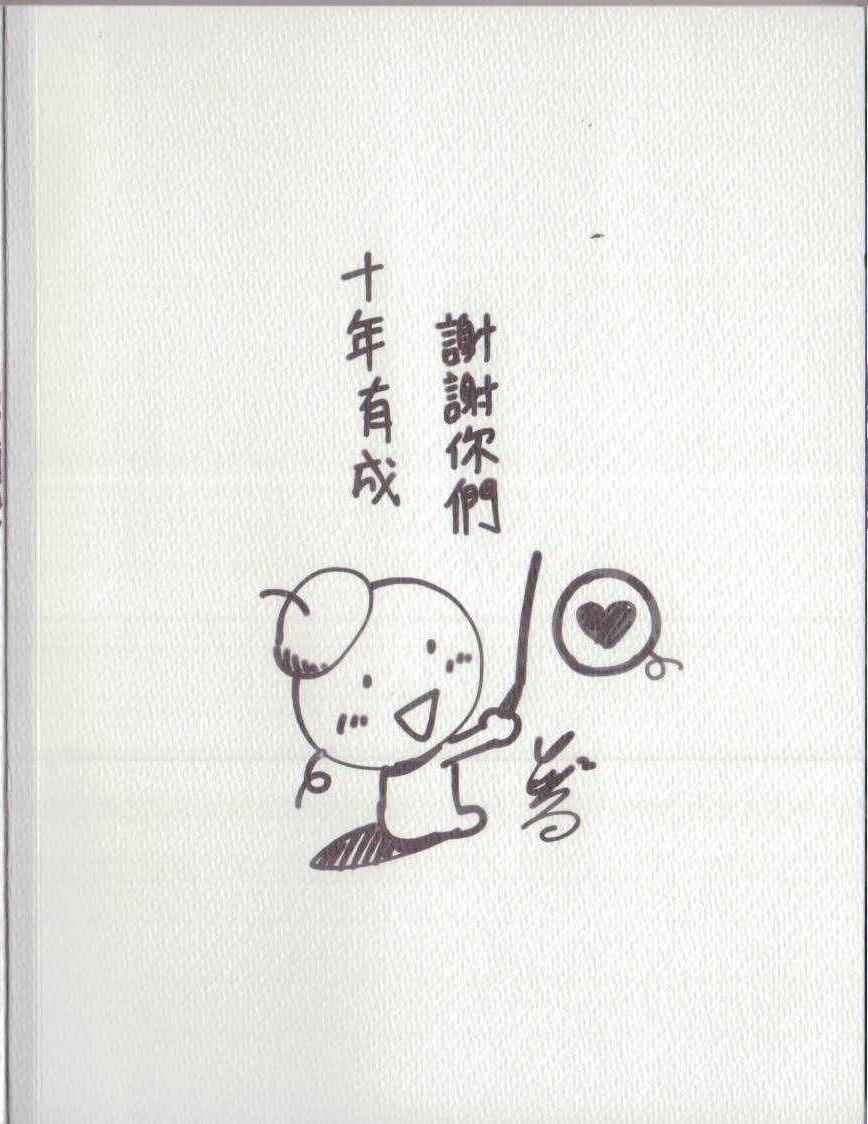 謝謝你們
十年有成